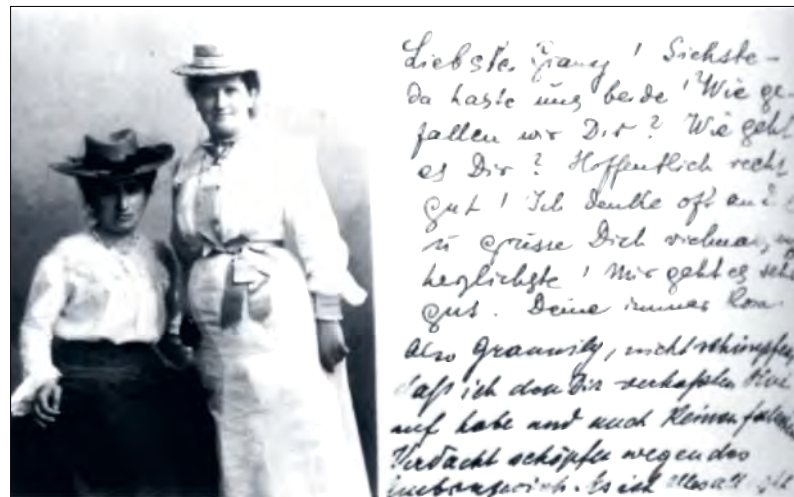 Liebste Grany! Siehste -
da haste uns beide! Wie ge-
fallen wir Dir? Wie geht
es Dir? Hoffentlich recht
gut! Ich denke oft an
u grüsse Dich vielmals,
herzlichste! Mir geht es sehr
gut. Deine immer Rosa
Also Grannily, nicht schimpfen,
daß ich den Dir verhaßten Hut
auf habe und auch keinen falschen
Verdacht schöpfen wegen des
Es ist alles all